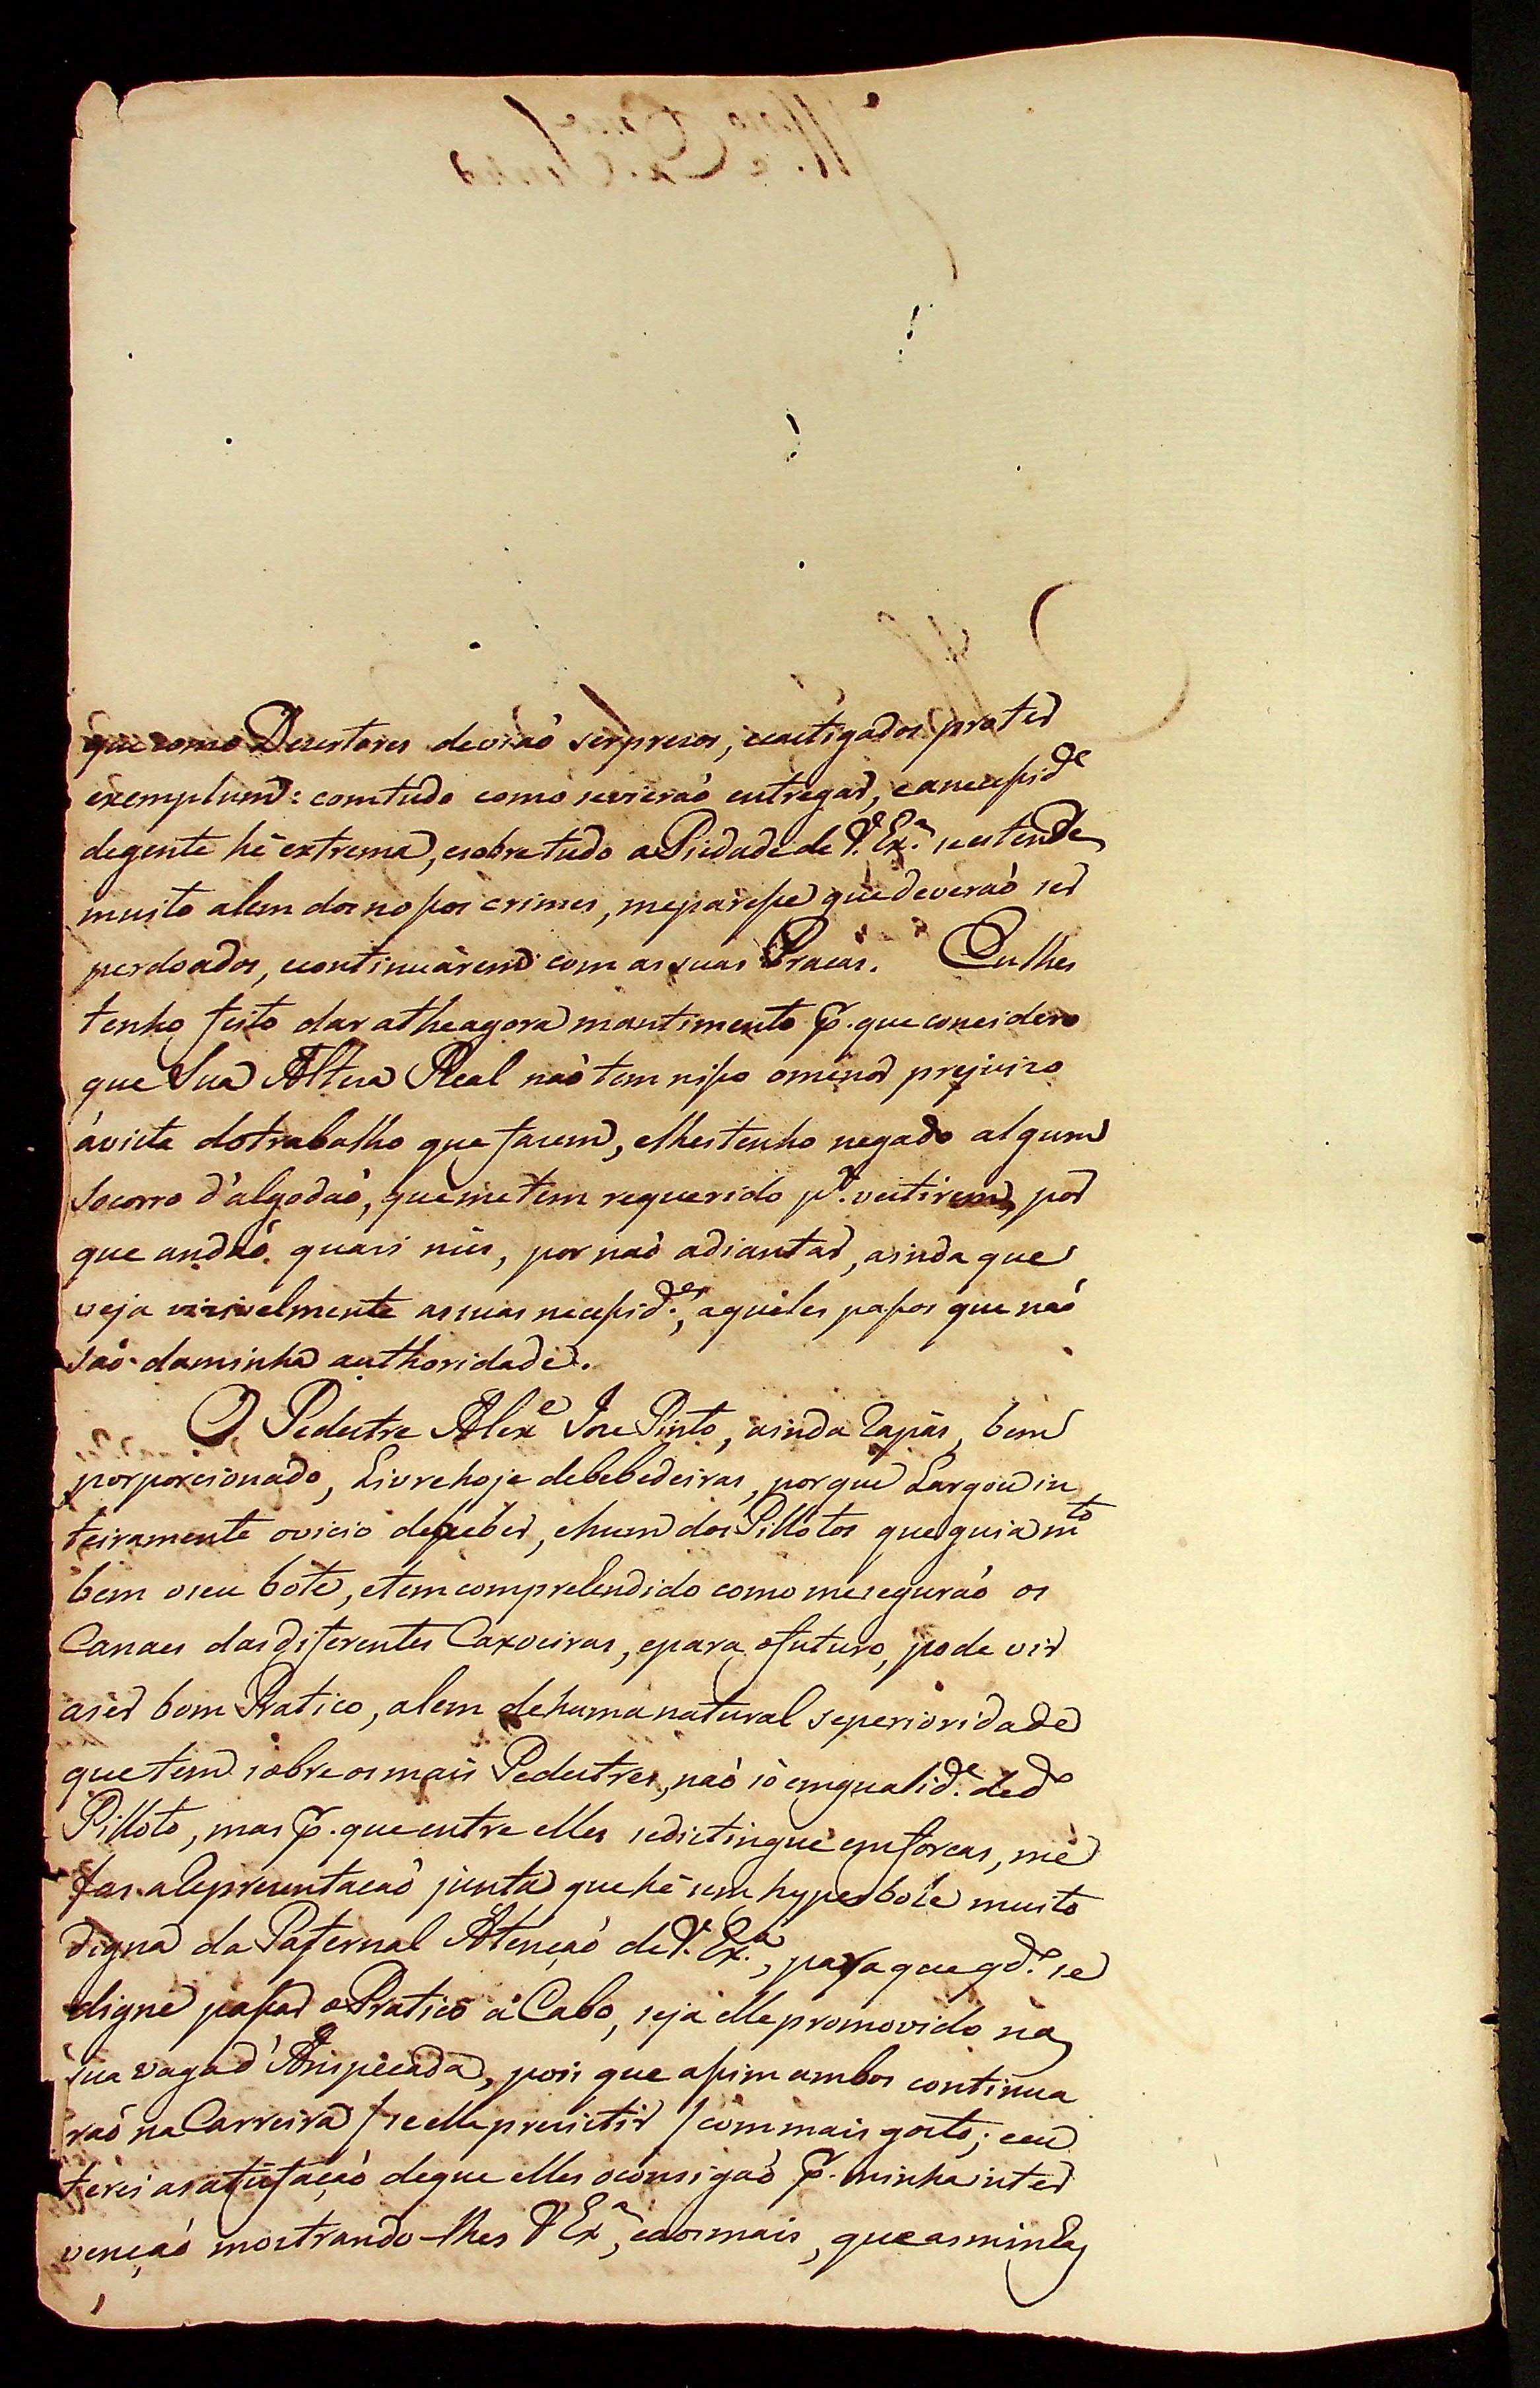 que como Dezertores deviaõ ser prezos, e castigados propter
exemplum: comtudo como se vieraõ entregar, e a necessid.e
de gente hé extrema, e sobre tudo a Piedade de V. Ex.a se estende
muito alem dos nossos crimes, me paresse que deveraõ ser
perdoados, e continuàrem com as suas Praças. Eu lhes
tenho feito dar athe agora mantimento p. que concidero
que Sua Alteza Real naõ tem nisso o menor prejuizo
ávista do trabalho que fazem, e lhes tenho negado algum
Socorro d'algodaõ, que me tem requerido p.a vestirem, por
que andaõ quazi nús, por naõ adiantar, ainda que
veja vizivelmente as suas necessid.es, aqueles passos que naõ
saõ da minha authoridade.
O Pedestre Alex.e Joze Pinto, ainda Rapás, bem
porporcionado, Livre hoje de bebedeiras, porque Largou in
teiramente o vicio de beber, e hum dos Pillotos que guia m.to
bem o seu bote, e tem comprehendido como me seguraõ os
Canaes das diferentes Caxoeiras, e para o futuro, pode vir
a ser bom Pratico, alem de huma natural seperioridade
que tem sobre os mais Pedestres, naõ só em qualid.e de d.o
Pilloto, mas p. que entre elles se distingue em forcas, me
fas a Reprezentacaõ junta que hé sem hyperbole muito
digna da Paternal Atençaõ de V. Ex.a, para que q.do se
digne passar o Pratico á Cabo, seja elle promovido na
sua vaga d'Anspecada, pois que assim ambos continua
raõ na Carreira / se elle prezistir / com mais gosto; e eu
terei a satisfaçaõ de que elles o consigaõ p. minha inter
vençaõ mostrando-lhes V Ex.a, e aos mais, que as minhas